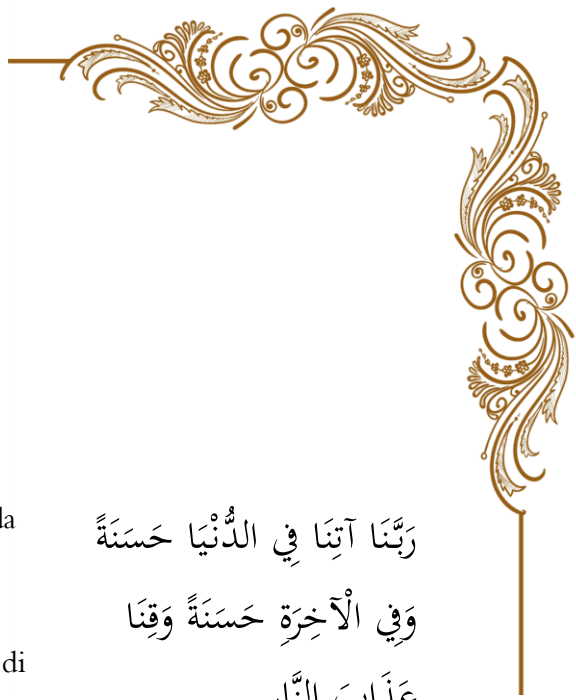 da
رَبَّنَا آتِنَا فِي الدُّنْيَا حَسَنَةً
وَفِي الْآخِرَةِ حَسَنَةً وَقِنَا
di
عَذَابَ النَّارِ